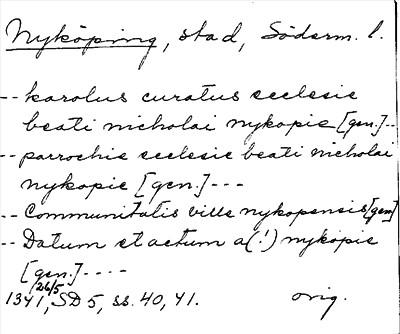 Nyköping, stad, Söderm. l.
-- karolus curatus ecclesie
beati nicholai nykopie [gen.]--
-- parrochie ecclesie beati nicholai
nykopie [gen.]---
-- Communitatis ville nykopensis [gen]
-- Datum et actum a(!) nykopie
[gen.]----
26/5
1341, SD 5, ss. 40, 41. orig.